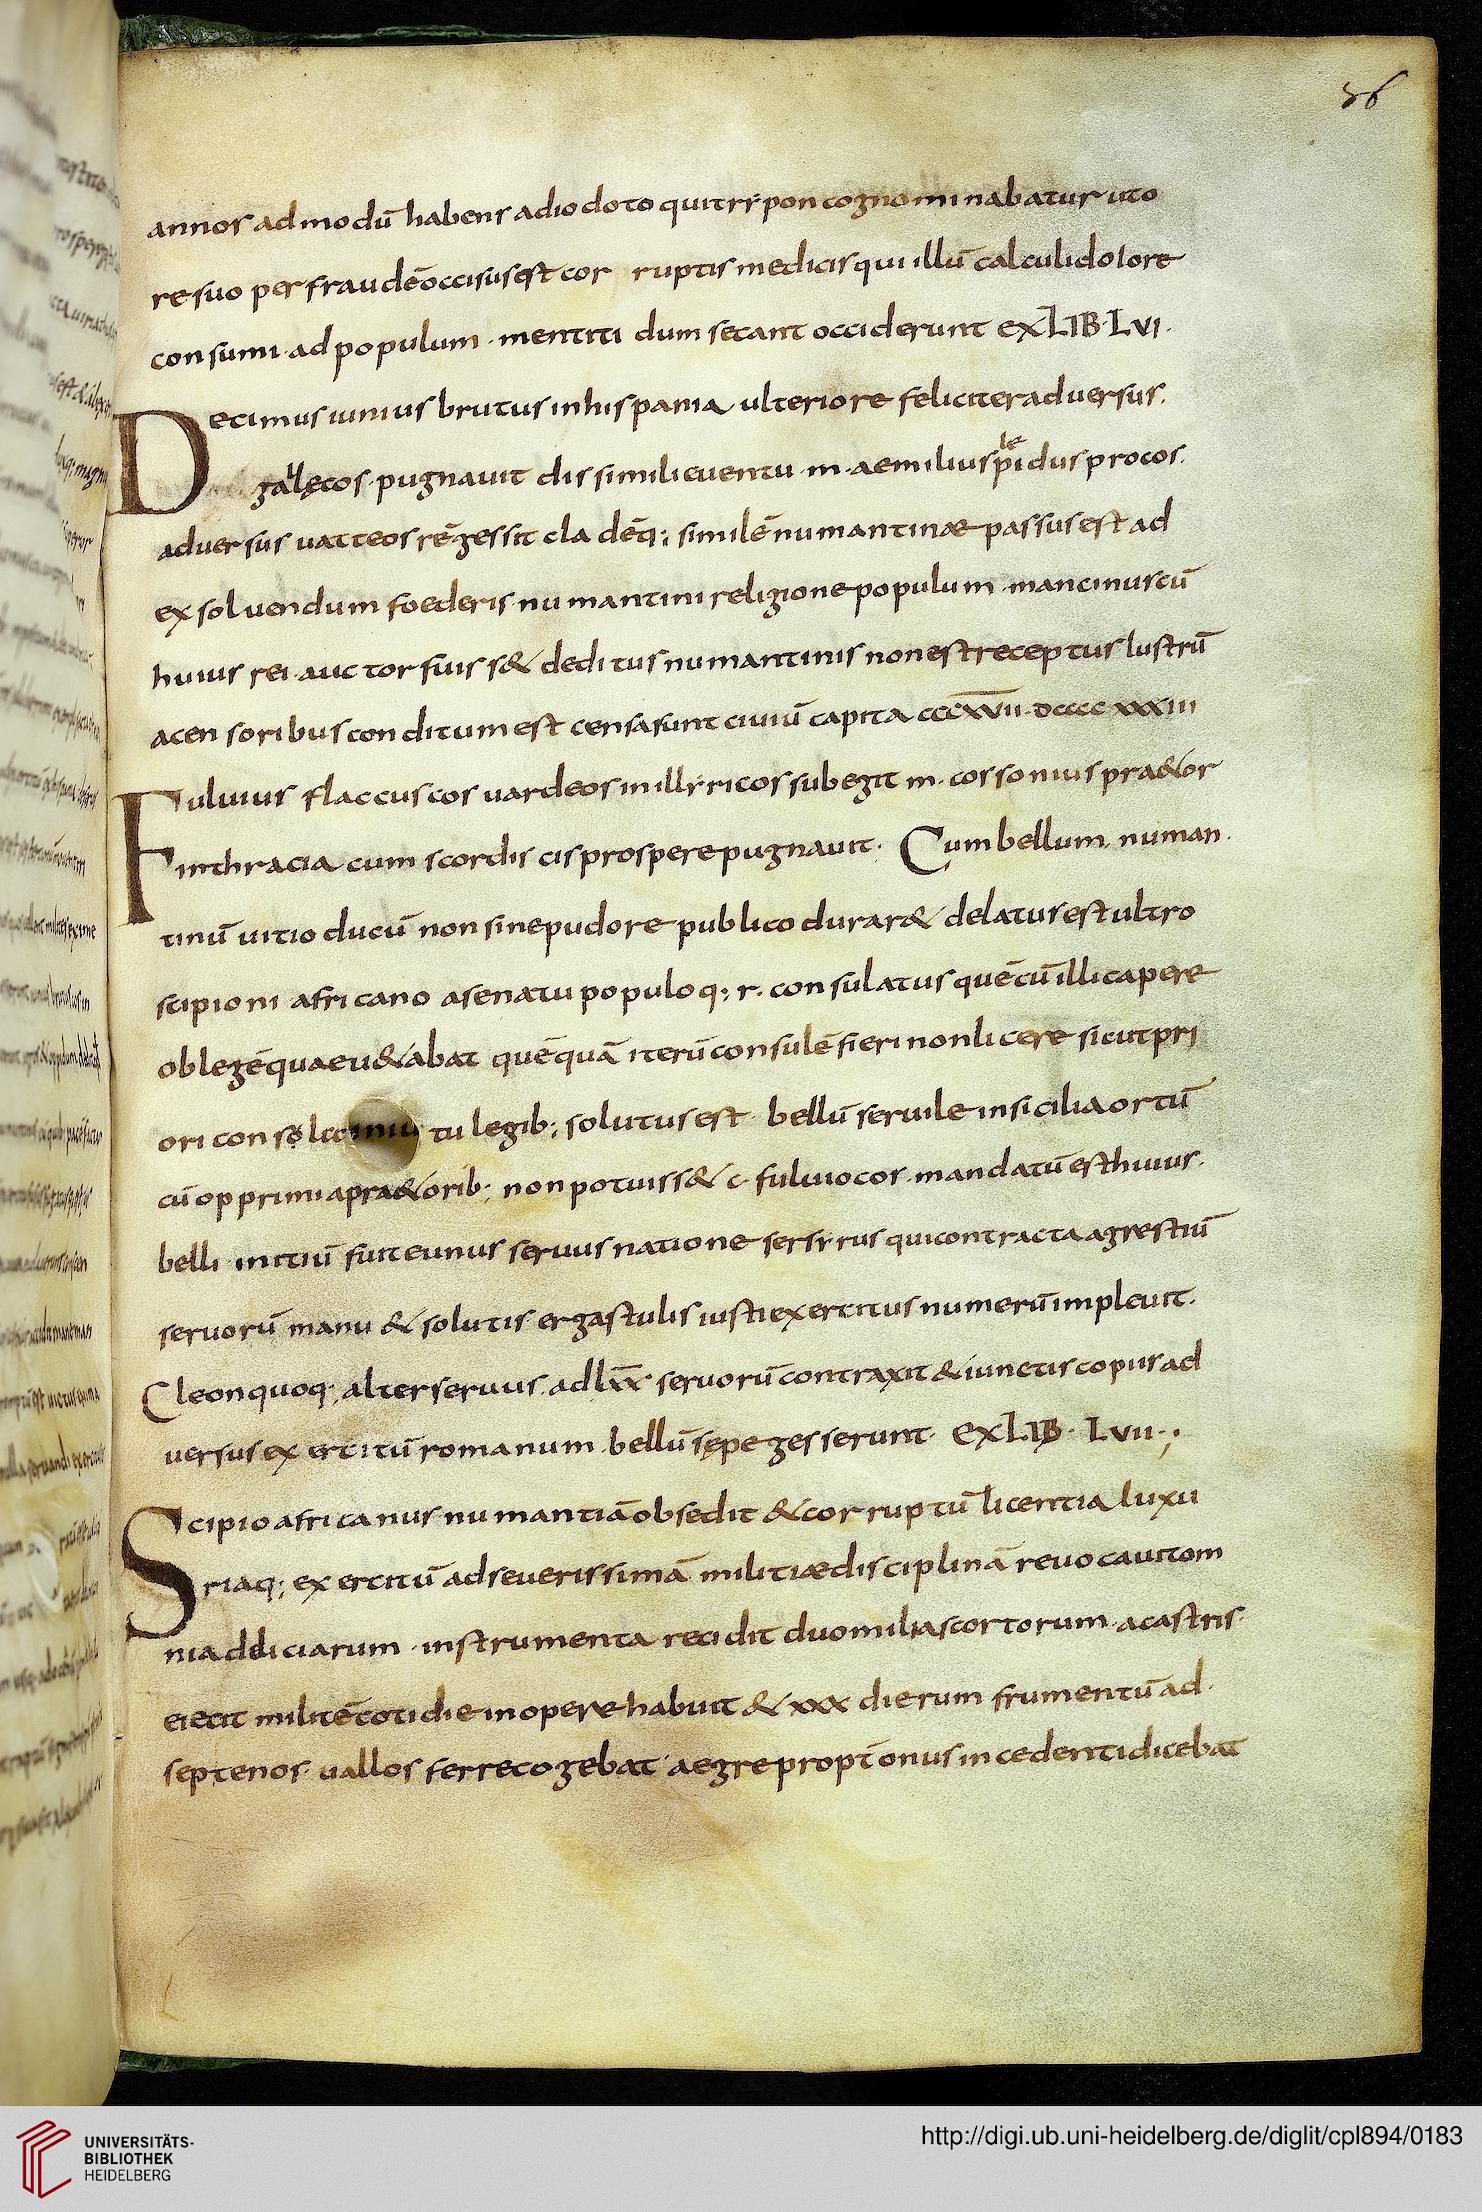 36
annos admodū habens adiodoto quitrypon cognominabatur uto
re suo per fraudē occisus est cor ruptis medicis qui illū calculi dolore
consumi · ad populum · mentiti dum secant occiderunt exLIB · LVI ·
Decimus iunius brutus inhispania ulteriore feliciter aduersus ·
galęcos · pugnauit dissimili euentu · m · aemilius pidus procos ·
le
aduersus uacceos rē gessit cladēq; similē numantinae passus est ad
exsoluendum foederis · numantini religione populum · mancinus cū
huius rei · auctor fuiss& deditus numantinis non est receptus lustrū
acensoribus conditum est censa sunt ciuiū capita cccxvii · dcccc xxxiii
Fuluius flaccus cos uardeos inillyricos subegit m · cossonius pra&or
inthracia cum scordiscis prospere pugnauit · Cum bellum numan ·
tinū uitio ducū non sine pudore publico durar& delatus est ultro
scipioni africano asenatu populoq; r · consulatus quē cū illi capere
ob legē quae u&abat quēquā iterū consulē fieri non licere sicut pri
ori con tu legib; solutus est · bellū seruile insicilia ortū
cū opprimi apra&orib; non potuiss& c · fuluio cos · mandatū est huius ·
belli · initiū fuit eunus seruus natione sersyrus qui contracta agrestiū
seruorū manu & solutis ergastulis iusti exercitus numerū impleuit ·
Cleon quoq; alter seruus · ad lxx seruorū contraxit & iunctis copiis ad
uersus exercitū romanum · bellū sępe gesserunt · exLIB · LVII · ;
Scipio africanus numantiā obsedit & corruptū licentia luxu
riaq; exercitū ad seuerissimā militiae disciplinā reuocauit om
nia deliciarum · instrumenta recidit duo milia scortorum · acastris ·
eiecit militē cotidie in opere habuit & xxx dierum frumentū ad ·
septenos · uallos ferre cogebat · aegre propt onus incedenti dicebat
UNIVERSITÄTS-
BIBLIOTHEK
HEIDELBERG
http://digi.ub.uni-heidelberg.de/diglit/cpl894/0183